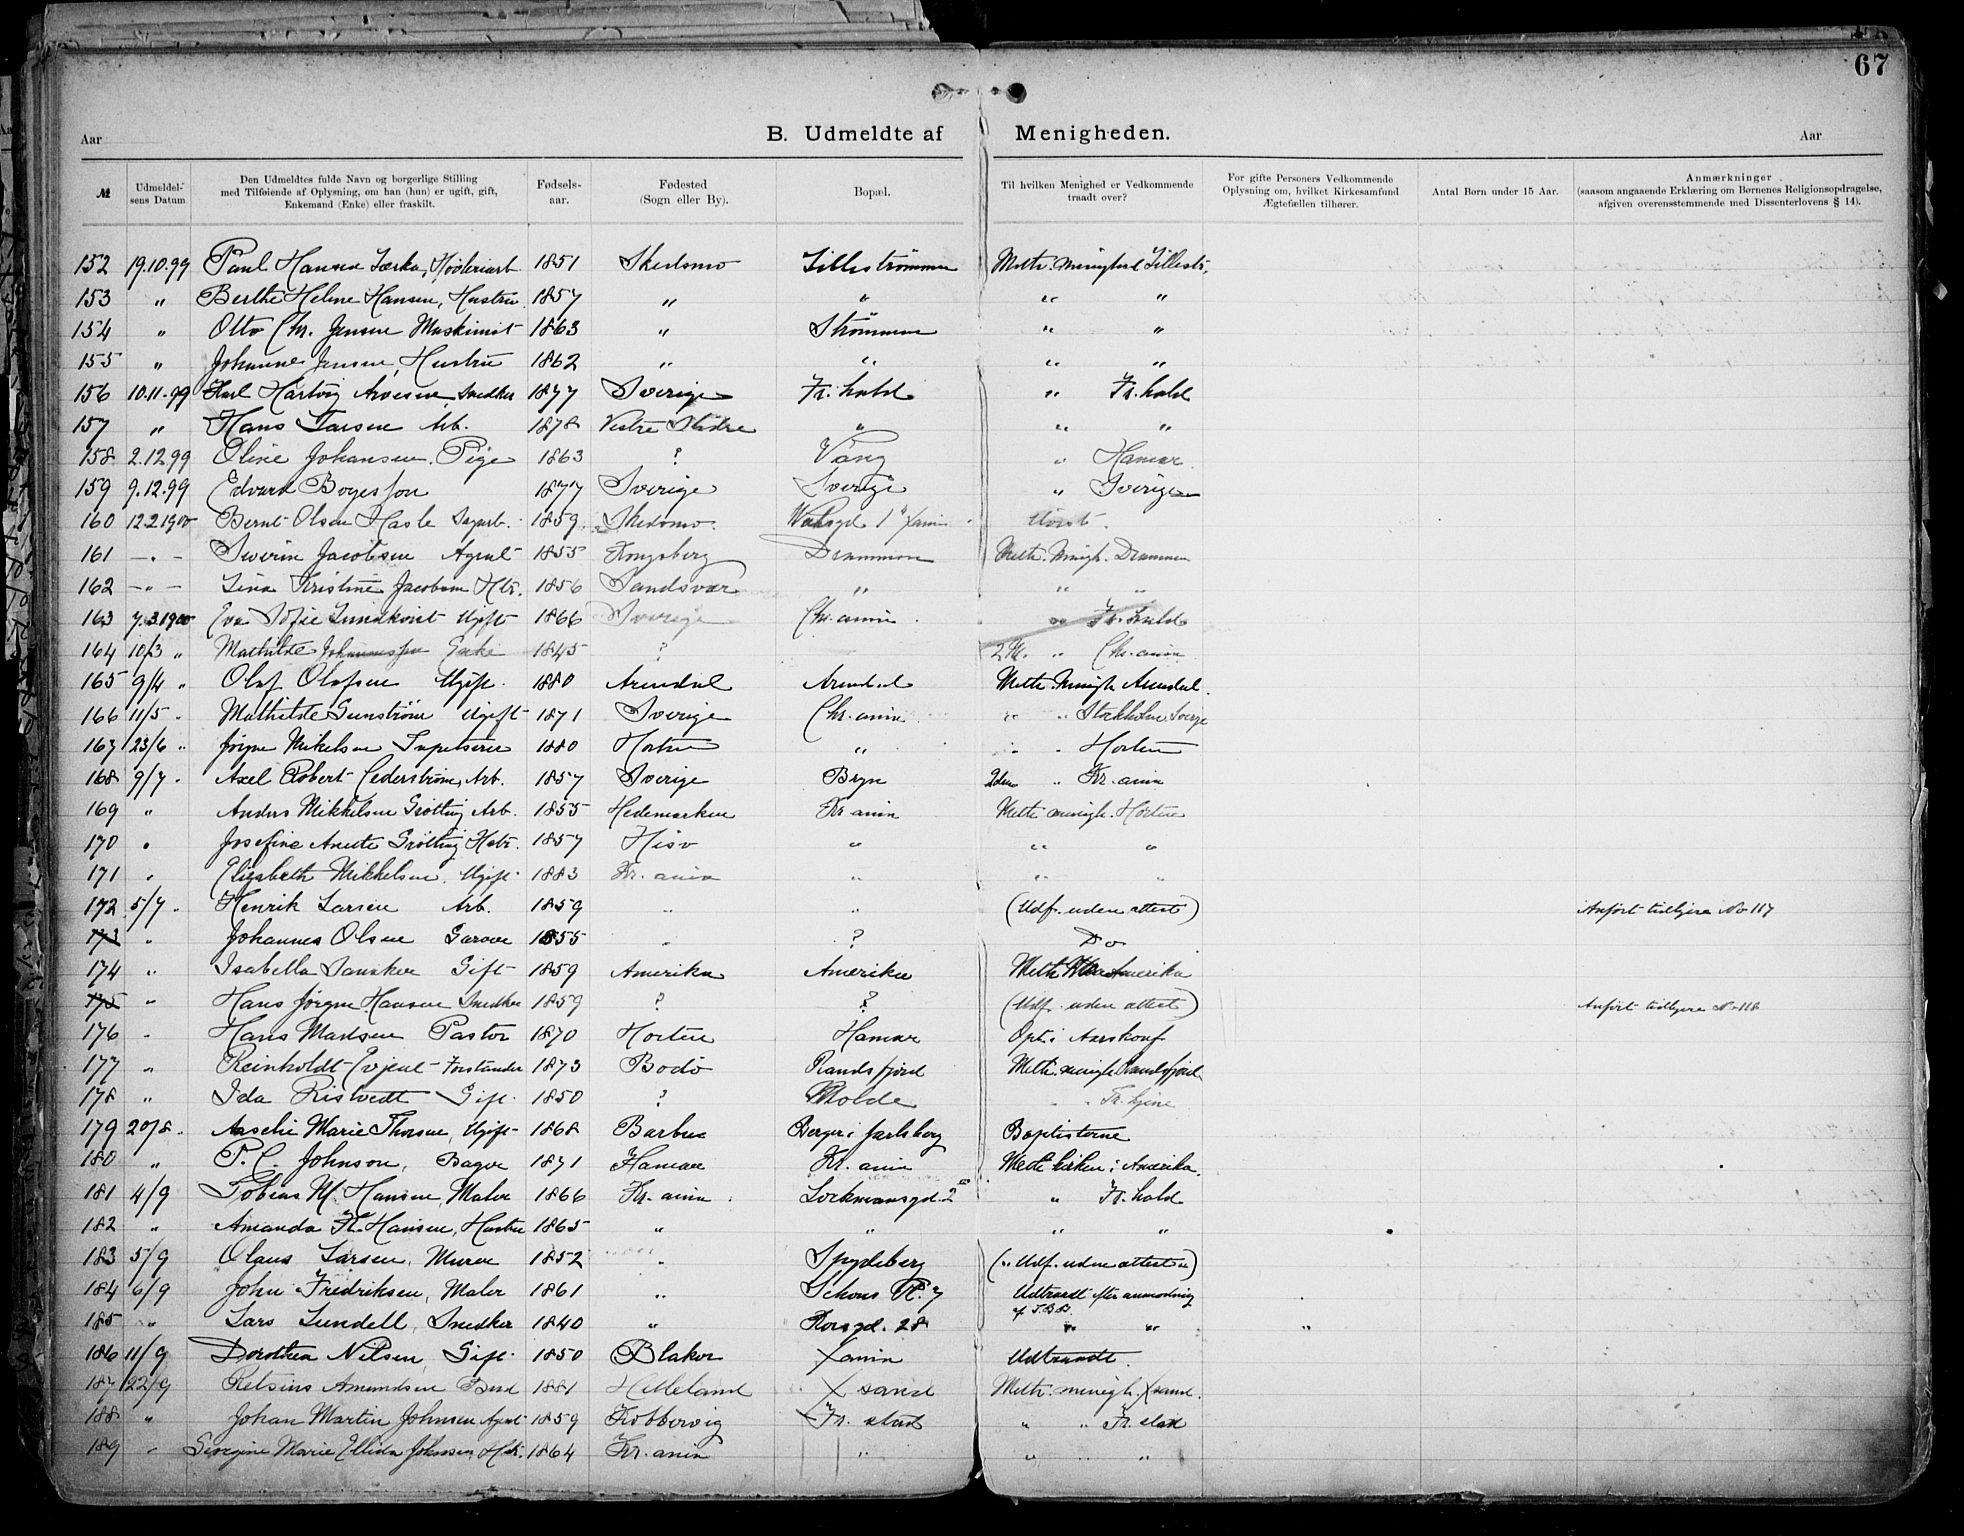 67
Aar B. Udmeldte af Menigheden. Aar
№ Udmeldelsens Datum Den Udmeldtes fulde Navn og borgerlige Stilling med Tilføiende af Oplysning, om han (hun) er ugift, gift, Enkemand (Enke) eller fraskilt. Fødselsaar. Fødested (Sogn eller By). Bopæl. Til hvilken Menighed er Vedkommende traadt over? For gifte Personers Vedkommende Oplysning om, hvilket Kirkesamfund Ægtefællen tilhører. Antal Børn under 15 Aar. Anmærkninger (saasom angaaende Erklæring om Børnenes Religionsopdragelse, afgiven overensstemmende med Dissenterlovens § 14).
152 19.10.99 Paul Hansen 1851 Skedsmo Lillestrømmen Meth. menighed Lillestr.
153 " Berthe Heline Hansen, Hustru 1857 " " " "
154 " Otto Chr. Jensen Maskinist 1863 " Strømmen " "
155 " Johanne Jensen, Hustru 1862 " " " "
156 10.11.99 Karl Hartvig Arvesen, Snedker 1877 Sverige Fr.hald " Fr.hald
157 " Hans Larsen Arb. 1878 Vestre Slidre " " "
158 2.12.99 Oline Johansen. Pige 1863 ? Vang " Hamar
159 9.12.99 Edvard Bogesson 1877 Sverige Sverige " Sverige
160 12.2.1900 Bernt Olsen Hasle 1859 Skedsmo.
161 - " - Severin Jacobsen Agent 1855 Kongsberg Drammen Meth. Menigh. Drammen
162 - " - Lina Kristine Jacobsen Hstr. 1856 Sandsvær " " "
163 7.3.1900 Eva Sofie Lundkvist Ugift 1866 Sverige Chr.ania " Fr.hald
164 10/3 " Mathilde Johannessen Enke 1845 ? 2 M. " Chr.ania
165 9/4 " Olaf Olafsen Ugift. 1880 Arendal Arendal Meth. Menigh Arendal.
166 11/5 " Mathilde Sunström Ugift 1871 Sverige Chr.ania " " Stockholm, Sverge
167 23/6 " Jørgen Mikelsen Tapetserer 1880 Horten " " " Horten
168 9/7 " Axel Robert Cederström, Arb. 1857 Sverige Bryn 2den " Kr.ania
169 " Anders Mikkelsen Grøtting Arb. 1855 Hedemarken Kr.ania Meth. menigh. Horten
170 " Josefine Anette Grøtting Hstr. 1857 Hisø " " "
171 " Elisabeth Mikkelsen. Ugift 1883 Kr.ania " " "
172 5/7 " Henrik Larsen Arb. 1859 " " (Udf. uden attest) Anført tidligere No 117
173 " Johannes Olsen Garver 1855 " ? Do
174 " Isabella Gift 1859 Amerika Amerika Meth. Amerika
175 " Hans Jørgen Hansen Snedker 1859 ? ? (Udf. uden attest) Anført tidligere No 118
176 " Hans Madsen Pastor 1870 Horten Hamar Opt. i Aarskonf
177 " Reinholdt Evjent Forstander 1873 Bodø Randsfjord Meth. menigh Randsfjord
178 " Ida Ristvedt Gift. 1850 ? Molde " "
179 20/8 " Aaselie Marie Thorsen, Ugift 1868 Barbu Berger i Jarlsberg Baptisterne
180 " P. C. Johnson, Bager 1871 Hamar Kr.ania Meth. kirken i Amerika.
181 4/9 Tobias M. Hansen, Maler 1866 Kr.ania Lockmansgd. 2 " Fr.hald
182 " Amanda Fr. Hansen, Hustru 1865 " " " "
183 5/9 Olaus Larsen, Murer 1852 " Spydeberg (" Udf. uden attest ")
184 6/9 John Fredriksen, Maler 1861 " Schous Pl. 7 Udtraadt efter anmodning af
185 " Lars Lundell, Snedker 1840 " Korsgd. 28 " " "
186 11/9 Dorothea Nilsen, Gift. 1850 Blaker Xania Udtraadt.
187 22/9 Amundsen 1881 Helleland Xsand Meth. menigh. Xsand.
188 " Johan Martin Johnsen Agent 1859 Kobbervig Fr.stad " " Fr.stad
189 " Marie Johnsen, Hstr. 1864 Kr.ania " " "